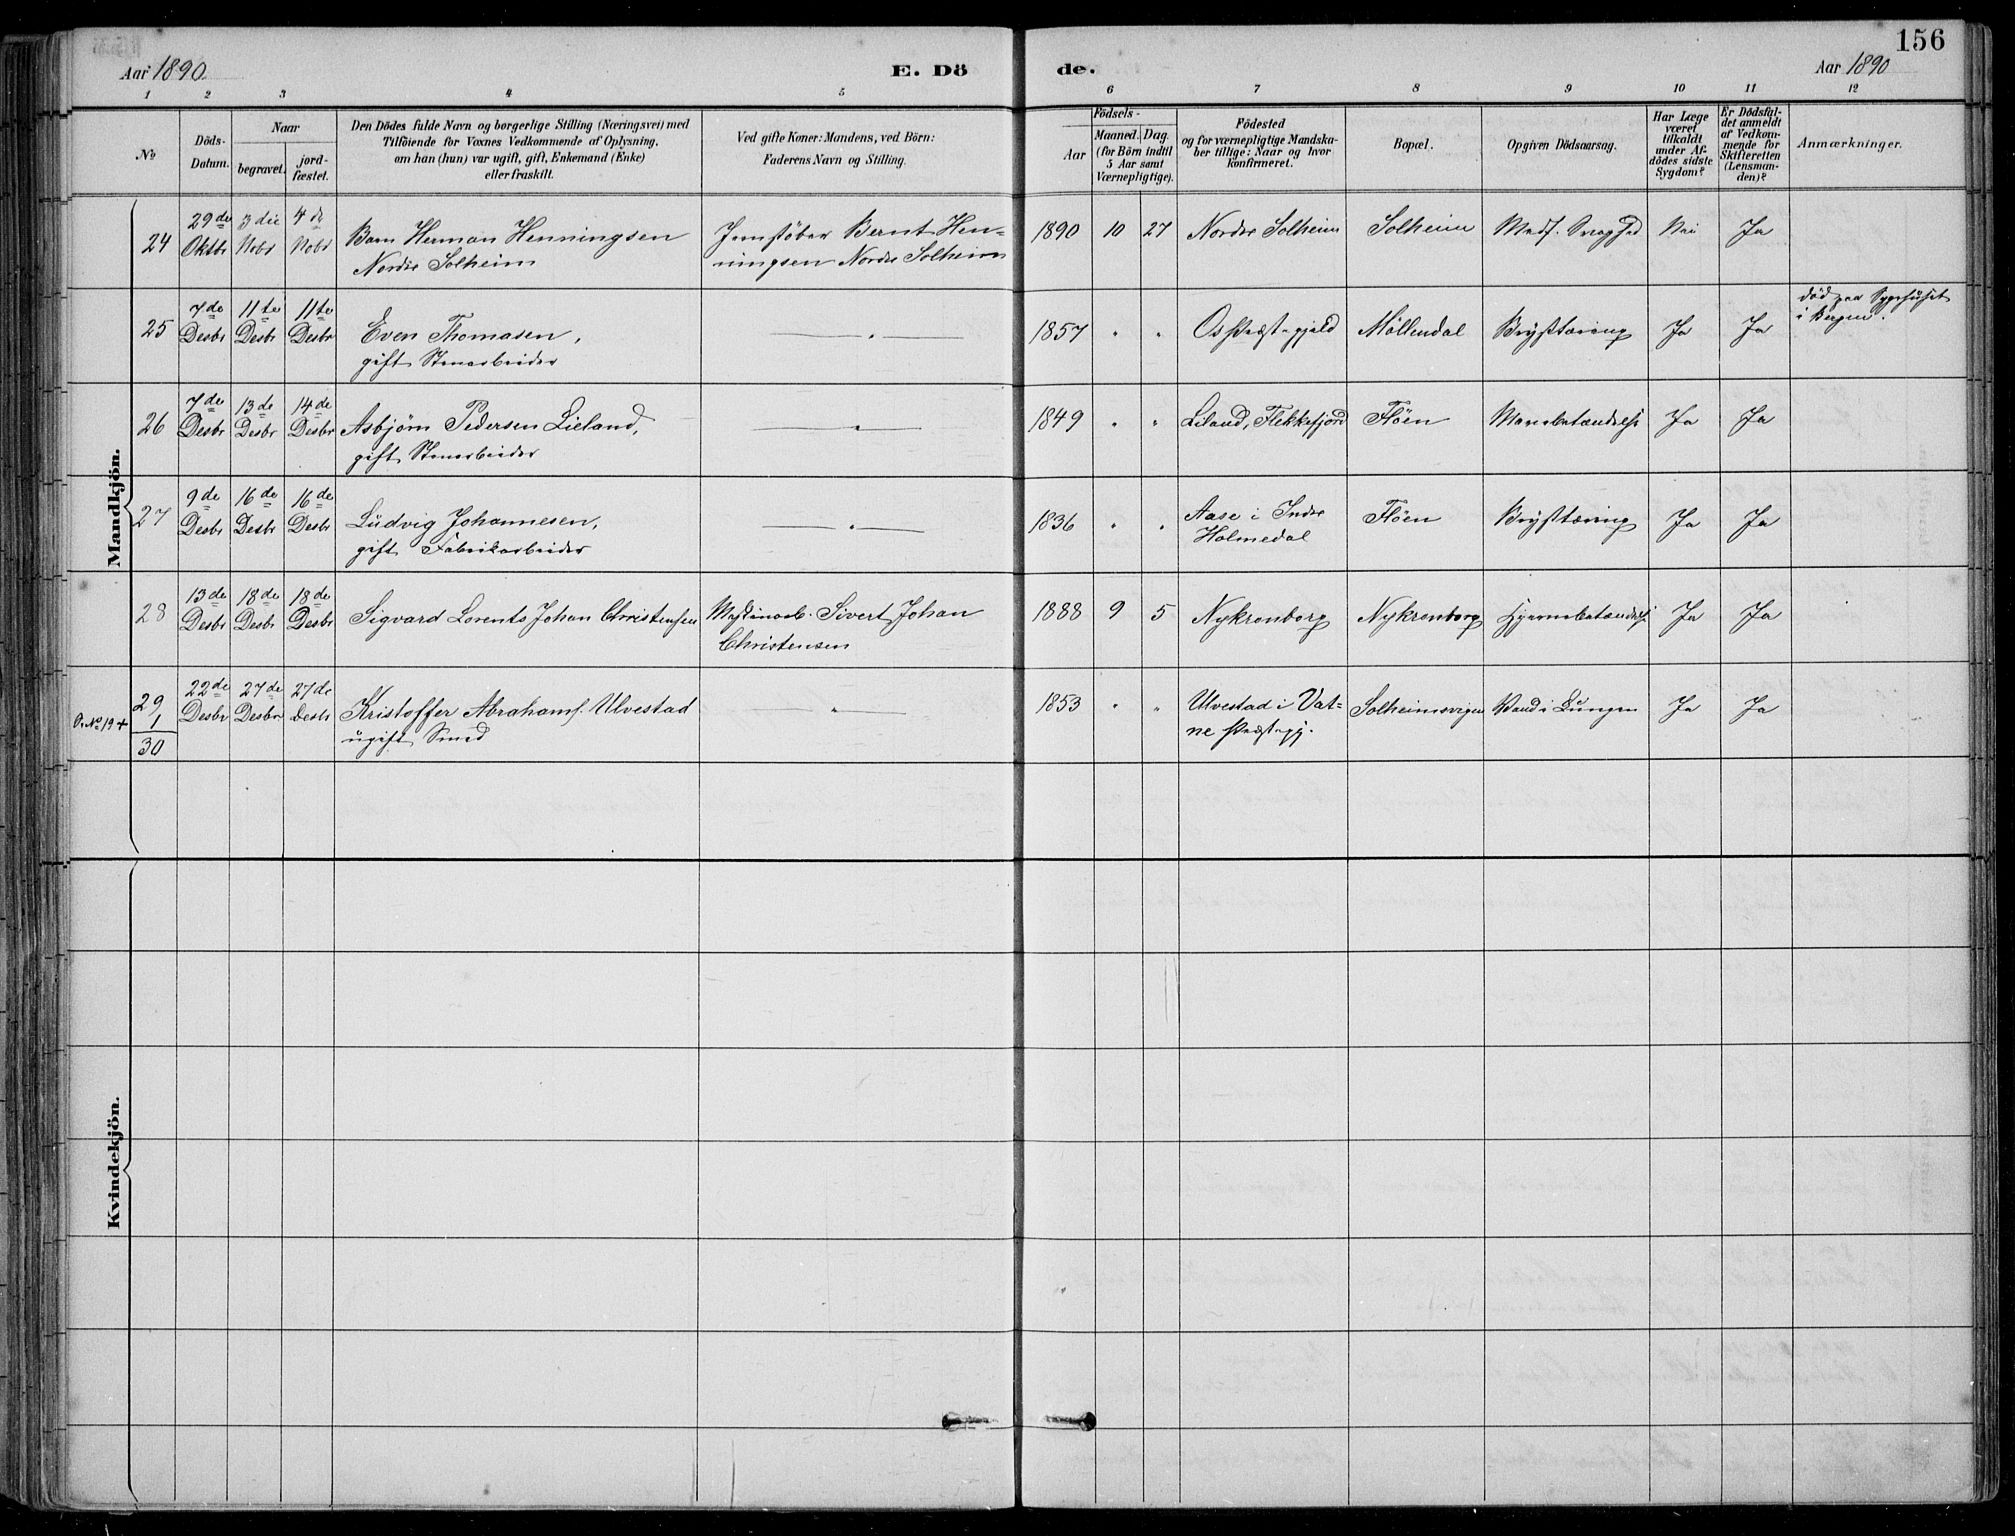 156
Aar 1890. E. Dö de. Aar 1890
1 2 3 4 5 6 7 8 9 10 11 12
No
Döds-Datum.
Naar
begravet.
jord-fæstet.
Den Dödes fulde Navn og borgerlige Stilling (Næringsvei) med
Tilföiende for Voxnes Vedkommende af Oplysning,
om han (hun) var ugift, gift, Enkemand (Enke)
eller fraskilt.
Ved gifte Koner: Mandens, ved Börn:
Faderens Navn og Stilling.
Födsels-
Aar
Maaned. Dag.
(for Börn indtil
5 Aar samt
Værnepligtige).
Födested
og for værnepligtige Mandska-
ber tillige: Naar og hvor
konfirmeret.
Bopæl.
Opgiven Dödsaarsag.
Har Læge
været
tilkaldt
under Af-
dödes sidste
Sygdom?
Er Dödsfal-
det anmeldt
af Vedkom-
mende for
Skifteretten
(Lensman-
den)?
Anmærkninger.
Mandkjön.
24 29de Oktbr 3die Nobr 4de Nobr Barn Herman Henningsen
Nordre Solheim
Jernstöber Bernt Hen-
ningsen Nordre Solheim
1890 10 27 Nordre Solheim Solheim Medf. Svaghed Nei Ja
25 7de Desbr 11te Desbr 11te Desbr Even Thomasen,
gift Stenarbeider
" 1857 " " Os Præstegjeld Möllendal Brysttæring Ja Ja
död paa Sygehuset
i Bergen.
26 7de Desbr 13de Desbr 14de Desbr Asbjörn Pedersen Lieland,
gift Stenarbeider
" 1849 " " Liland, Flekkefjord Flöen Mavebetændelse Ja Ja
27 9de Desbr 16de Desbr 16de Desbr Ludvig Johannesen,
gift Fabrikarbeider
" 1836 " " Aase i Indre
Holmedal
Flöen Brysttæring Ja Ja
28 13de Desbr 18de Desbr 18de Desbr Sigvard Lorents Johan Christensen
Maskinarb. Sivert Johan
Christensen
1888 9 5 Nykronborg Nykronborg Hjernebetændelse Ja Ja
O. No 19 +
29
1
30
22de Desbr 27de Desbr 27de Desbr Kristoffer Abrahams. Ulvestad
ugift Smed
" 1853 " " Ulvestad i Vat-
ne Præstegj.
Solheimsvigen Vand i Lungen Ja Ja
Kvindekjön.